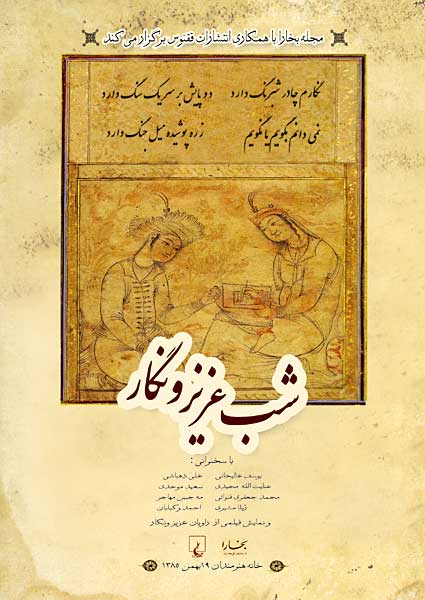 مجله بخارا با همکاری انتشارات ققنوس برگزار می‌کند
نگارم چادر شبرنگ دارد دو پایش بر سر یک سنگ دارد
نمی دانم بگویم یا نگویم زره پوشیده میل جنگ دارد
شب عزیز و نگار
با سخنرانی :
یوسف علیخانی علی دهباشی
عنایت الله مجیدی سعید موحدی
محمد جعفری قنواتی مه جبین مهاجر
ژیلا مشیری احمد وکیلیان
و نمایش فیلمی از راویان عزیز و نگار
بخارا
خانه هنرمندان ۱۹ بهمن ۱۳۸۵